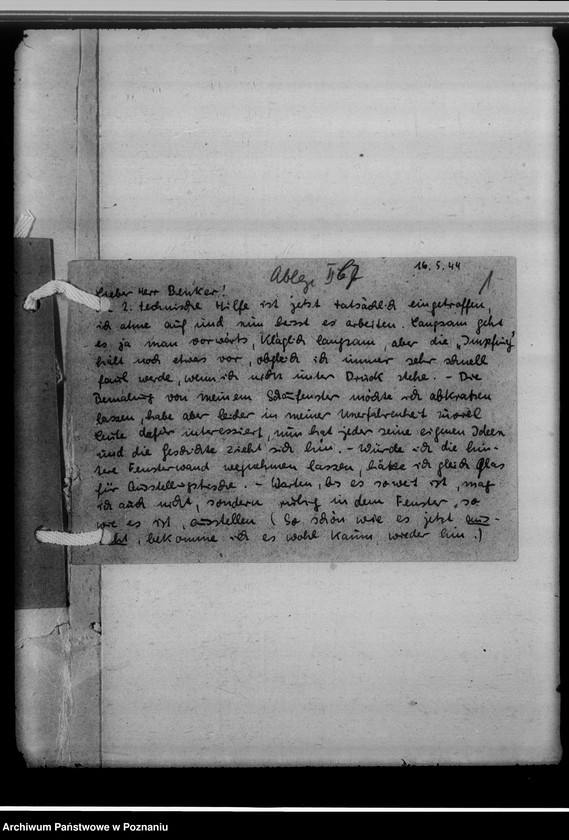 Ablg. II b 7
16.5.44
1
Lieber Herr Benker!
2. technische Hilfe ist jetzt tatsächlich eingetroffen,
ich atme auf und nun lässt es arbeiten. Langsam geht
es ja man vorwärts, kläglich langsam, aber die „Impfung"
hält noch etwas vor, obgleich ich immer sehr schnell
faul werde, wenn ich nicht unter Druck stehe. - Die
Bemalung von meinem Schaufenster möchte ich abkratzen
lassen, habe aber leider in meiner Unerfahrenheit zuviel
Leute dafür interessiert, nun hat jeder seine eigenen Ideen
und die Geschichte zieht sich hin. - Würde ich die hin-
tere Fensterwand wegnehmen lassen, hätte ich gleich Glas
für Ausstellungstische. - Warten, bis es soweit ist, mag
ich auch nicht, sondern ruhig in dem Fenster, so
wie es ist, ausstellen (So schön wie es jetzt aus-
, bekomme ich es wohl kaum wieder hin.)
Archiwum Państwowe w Poznaniu